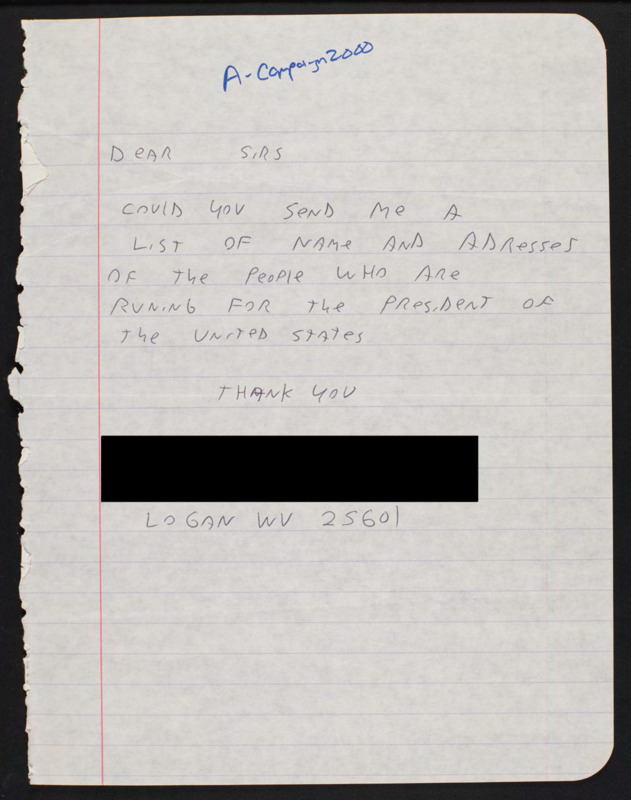 A-Campaign2000
DeAR SiRS
COULD YOU SeND Me A
LiST OF NAMe AND ADResses
OF The PeoPle WHO ARe
RUNiNG FOR The PResiDeNT OF
The UNiTeD STATes
THANK YOU
LOGAN WV 25601